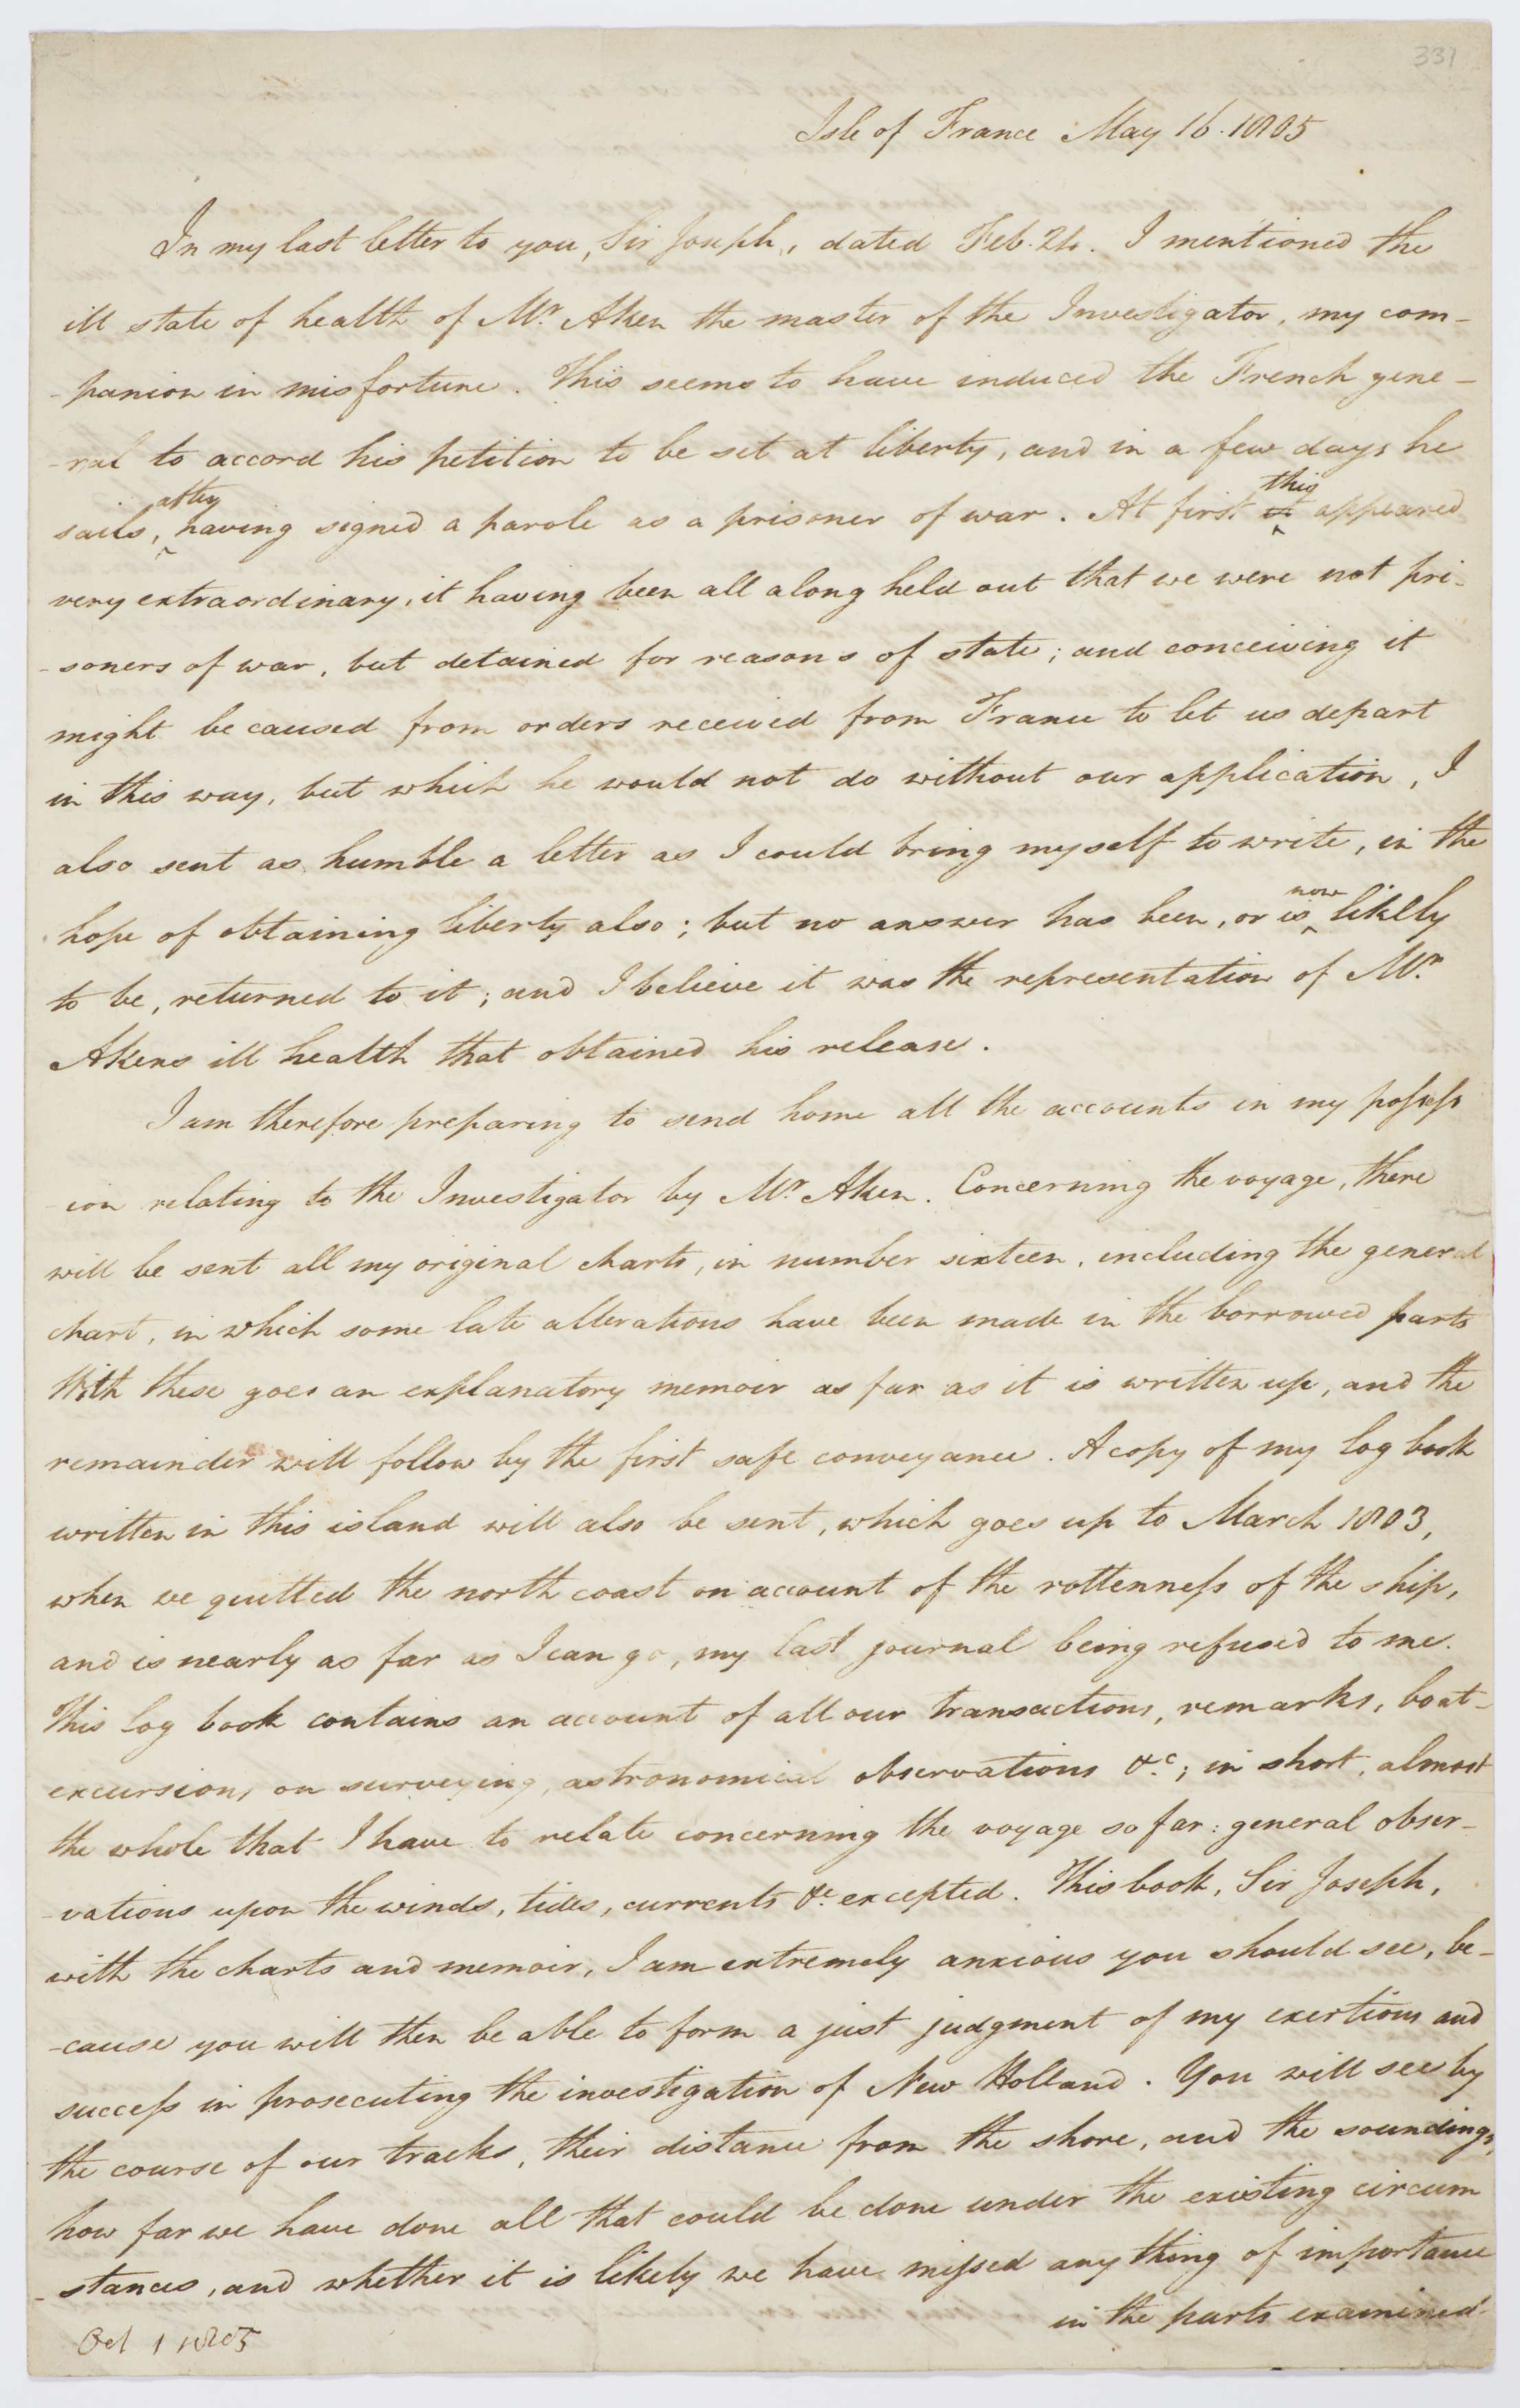 331
Isle of France May 16. 1805
In my last letter to you, Sir Joseph, dated Feb. 24. I mentioned the
ill state of health of Mr. Aken the master of the Investigator, my com-
-panion in misfortune. This seems to have induced the French gene-
-ral to accord his petition to be set at liberty, and in a few days he
sails, after having signed a parole as a prisoner of war. At first it this appeared
very extraordinary, it having been all along held out that we were not pri-
-soners of war, but detained for reasons of state; and conceiving it
might be caused from orders received from France to let us depart
in this way, but which he would not do without our application, I
also sent as humble a letter as I could bring myself to write, in the
hope of obtaining liberty also; but no answer has been, or is now likely
to be, returned to it; and I believe it was the representation of Mr.
Akens ill health that obtained his release.
I am therefore preparing to send home all the accounts in my possess
-ion relating to the Investigator by Mr. Aken. Concerning the voyage, there
will be sent all my original charts, in number sixteen, including the general
chart, in which some late alterations have been made in the borrowed parts
With these goes an explanatory memoir as far as it is written up, and the
remainder will follow by the first safe conveyance. A copy of my log book
written in this island will also be sent, which goes up to March 1803,
when we quitted the north coast on account of the rottenness of the ship,
and is nearly as far as I can go, my last journal being refused to me.
This log book contains an account of all our transactions, remarks, boat-
excursions on surveying, astronomical observations &c.; in short, almost
the whole that I have to relate concerning the voyage so far: general obser-
-vations upon the winds, tides, currents &c. excepted. This book, Sir Joseph,
with the charts and memoir, I am extremely anxious you should see, be-
-cause you will then be able to form a just judgment of my exertions and
success in prosecuting the investigation of New Holland. You will see by
the course of our tracks, their distance from the shore, and the soundings,
how far we have done all that could be done under the existing circum
-stances, and whether it is likely we have missed any thing of importance
in the parts examined
Oct 1 1805